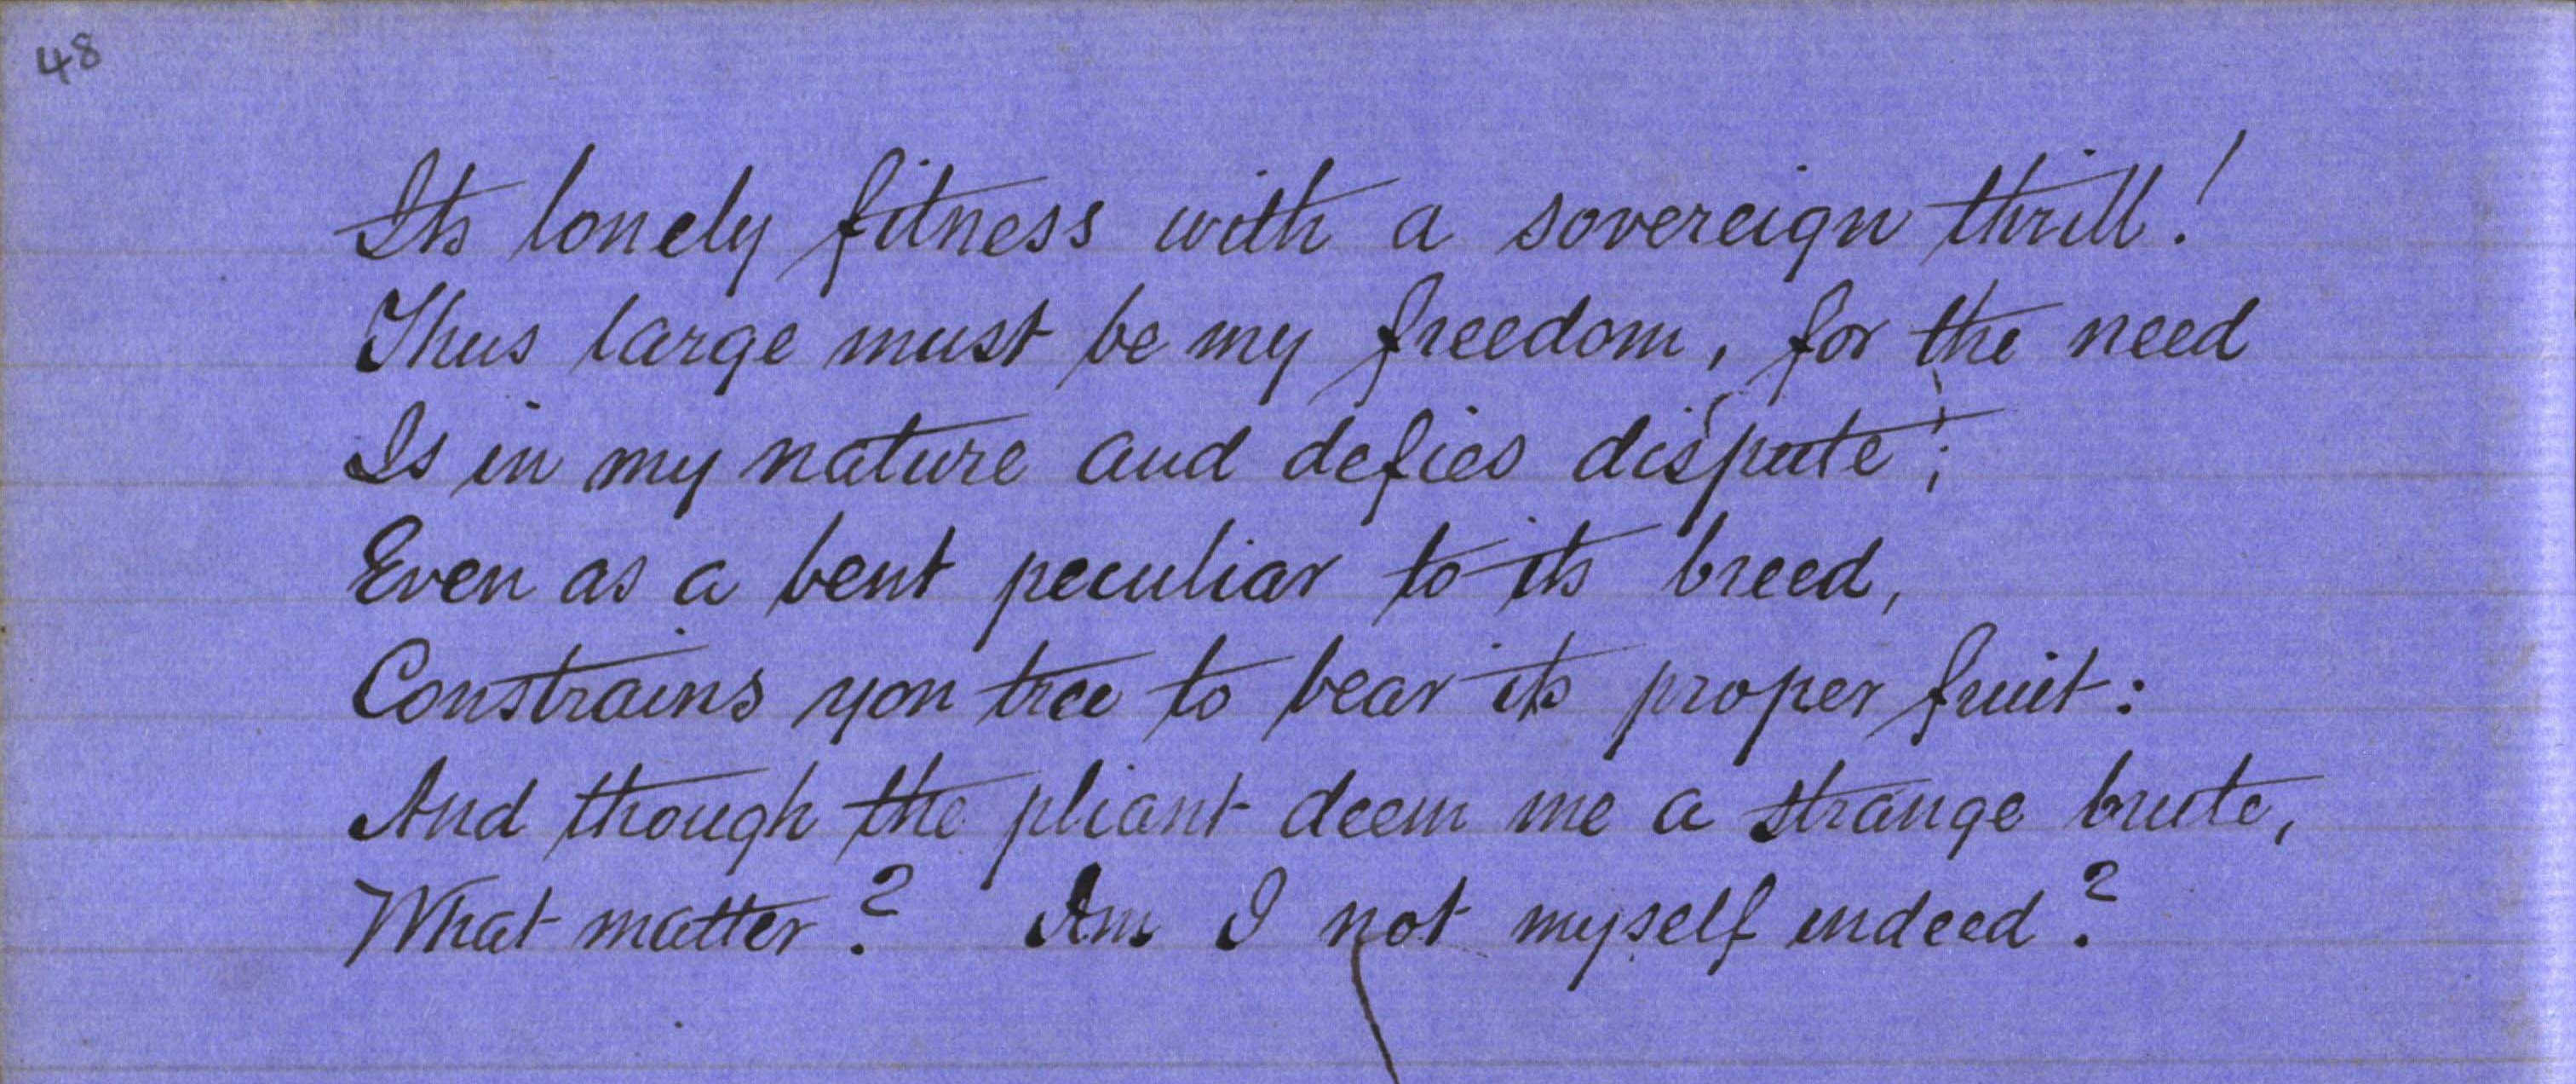 48
Its lonely fitness with a sovereign thrill!
Thus large must be my freedom, for the need
Is in my nature and defies dispute;
Even as a bent peculiar to its breed,
Constrains yon tree to bear its proper fruit:
And though the pliant deem me a strange brute,
What matter? Am I not myself indeed?